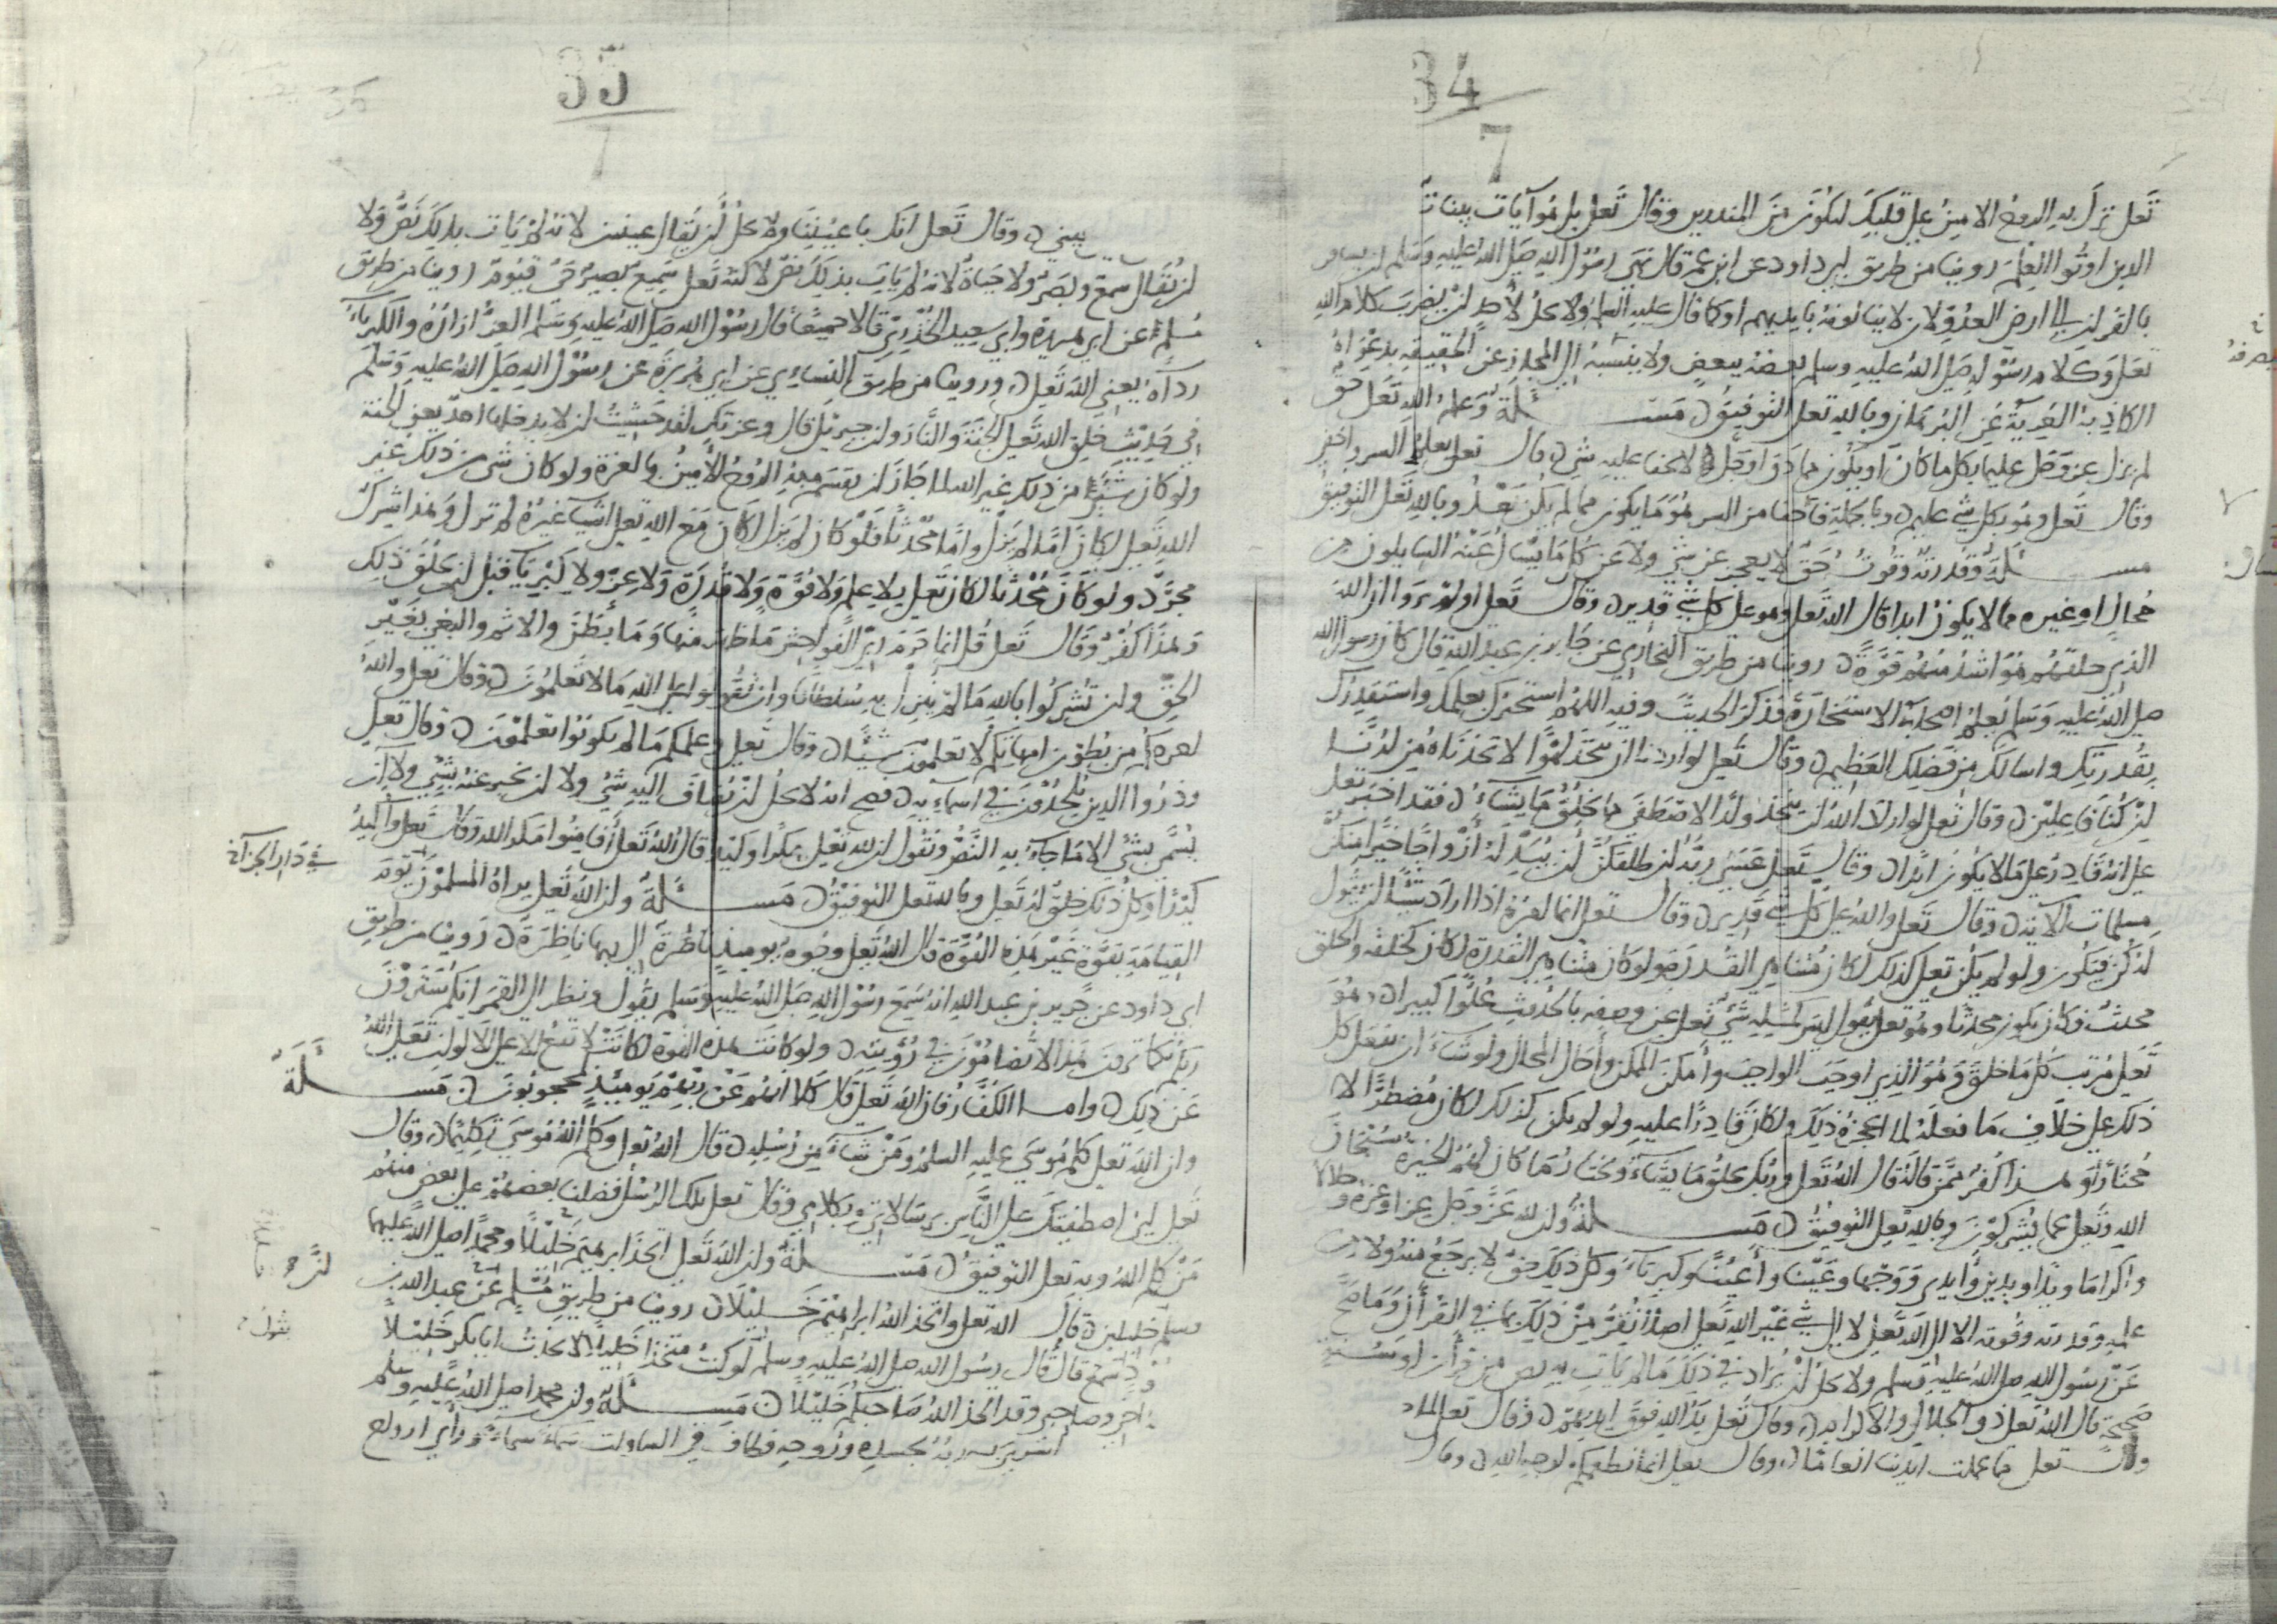 34
7
تعلى نزل به الروح الامين على قلبك لتكون من المنذرين وقال تعلى بل هو آيات بينات
الذين اوتوا العلم روينا من طريق ابي داود عن ابن عمر قال نهى رسول الله صلى الله عليه وسلم ان يسافر
بالقرءان الى ارض العدو لان لا ينالونه بايديهم او كما قال عليه السلم ولا يحل لأحد ان يضرب كلام الله
تعلى وكلام رسوله صلى الله عليه وسلم بعضه ببعض ولا ينسبه الى المجاز عن الحقيقة بدعواه
الكاذبة العرية عن البرهان وبالله تعلى التوفيق مسـلة وعلم الله تعلى حق
لم يزل عز وجل عليما بكل ما كان او يكون مما دق او جل لا يخفا عليه شيء قال تعلى يعلم السر واخفى
وقال تعلى وهو بكل شيء عليم وبالجملة فأخفا من السر هو ما يكون مما لم يكن بعد وبالله تعلى التوفيق
مسـلة وقدرته وقوته حق لا يعجز عن شيء ولا عن كل ما يسأل عنه السايلون من
محال او غيره مما لا يكون ابدا قال الله تعلى وهو على كل شيء قدير وقال تعلى اولم يروا ان الله
الذي خلقهم هو اشد منهم قوة روينا من طريق البخاري عن جابر بن عبد الله قال كان رسول الله
صلى الله عليه وسلم يعلم اصحابه الاستخارة فذكر الحديث وفيه اللهم استخيرك بعلمك واستقدرك
بقدرتك واسالك من فضلك العظيم وقال تعلى لو اردنا ان نتخذ لهوا لاتخذناه من لدنا
ان كنا فاعلين وقال تعلى لو اراد الله ان يتخذ ولدا لاصطفى مما يخلق ما يشاء فقد اخبر تعلى
على انه قادر على ما لا يكون ابدا وقال تعلى عسى ربه ان طلقكن ان يبدله ازواجا خيرا منكن
مسلمات الاية وقال تعلى والله على كل شيء قدير وقال تعلى انما امره اذا اراد شيئا ان يقول
له كن فيكون ولو لم يكن تعلى كذلك لكان متناهي القدرة ولو كان متناهي القدرة لكان كخلقه والخلق
محدث فكان يكون محدثا وهو تعلى يقول ليس كمثله شيء تعلى عن وصفه بالحديث علوا كبيرا وهو
تعلى مرتب كل ما خلق وهو الذي اوجب الواجب وأمكن الممكن وأحال المحال ولو شاء ان يفعل كل
ذلك على خلاف ما فعله لما اعجزه ذلك ولكان قادرا عليه ولو لم يكن كذلك لكان مضطرا لا
مختارا وهذا كفر ممن قاله قال الله تعلى وربك يخلق ما يشاء ويختار ما كان لهم الخيرة سبحان
الله وتعلى عما يشركون وبالله تعلى التوفيق مسـلة وان لله عز وجل عزا وعزة وجلالا
واكراما ويدا ويدين وأيدي ووجها وعينا وأعينا وكبرياء وكل ذلك حق لا يرجع منه ولا من
علمه وقدرته وقوته الا الى الله تعلى لا الى شيء غير الله تعلى اصلا نقر من ذلك بما في القرآن وما صح
عن رسول الله صلى الله عليه وسلم ولا يحل ان يزاد في ذلك ما لم يات به نص من قرآن او سنة
صحيحة قال الله تعلى ذو الجلال والاكرام وقال تعلى يد الله فوق ايديهم وقال تعلى لما
وقال تعلى مما عملت ايدينا انعاما وقال تعلى انما نطعمكم لوجه الله وقال
35
بيدي وقال تعلى انك باعيننا ولا يحل ان يقال عينين لانه لم يات بذلك نص ولا
ان يقال سمع وبصر ولا حياة لانه لم يات بذلك نص لاكنه تعلى سميع بصير حي قيوم روينا من طريق
مسلم عن ابي هريرة وابي سعيد الخدري قالا جميعا قال رسول الله صلى الله عليه وسلم العز ازاره والكبرياء
رداه يعني الله تعلى وروينا من طريق النسائي عن ابي هريرة عن رسول الله صلى الله عليه وسلم
في حديث خلق الله تعلى الجنة والنار وان جبريل قال وعزتك لقد خشيت ان لا يدخلها احد يعني الجنة
ولو كان شيئا من ذلك غير الله لما جاز ان يقسم به الروح الأمين بالعزة ولو كان شيء من ذلك غير
الله تعلى لكان اما لم يزل واما محدثا فلو كان لم يزل لكان مع الله تعلى اشيا غيره لم تزل وهذا شرك
مجرد ولو كان محدثا لكان تعلى بلا علم ولا قوة ولا قدرة ولا عزة ولا كبريا قبل ان يخلق ذلك
وهذا كفر وقال تعلى قل انما حرم ربي الفواحش ما ظهر منها وما بطن والاثم والبغي بغير
الحق وان تشركوا بالله ما لم ينزل به سلطانا وان تقولوا على الله ما لا تعلمون وقال تعلى والله
اخرجكم من بطون امهاتكم لا تعلمون شيئا وقال تعلى وعلمكم ما لم تكونوا تعلمون وقال تعلى
وذروا الذين يلحدون في اسمآيه فصح انه لا يحل ان يضاف اليه شيء ولا ان يخبر عنه بشيء ولا ان
يسمى بشيء الا ما جاء به النص ونقول ان لله تعلى مكرا وكيدا قال الله تعلى أفأمنوا مكر الله وقال تعلى وأكيد
كيدا وكل ذلك خلق له تعلى وبالله تعلى التوفيق مسـلة وان الله تعلى يراه المسلمون يوم
القيامة بقوة غير هذه القوة قال الله تعلى وجوه يوميذ ناضرة الى ربها ناظرة روينا من طريق
ابي داود عن جرير بن عبد الله انه سمع رسول الله صلى الله عليه وسلم يقول ونظر الى القمر انكم سترون
ربكم كما ترون هذا لا تضامون في رؤيته ولو كانت هذه القوة لكانت لا تقع الا على الالوان تعلى الله
عن ذلك واما الكفار فان الله تعلى قال كلا انهم عن ربهم يوميذ لمحجوبون مسـلة
وان الله تعلى كلم موسى عليه السلم ومن شاء من رسله قال الله تعلى وكلم الله موسى تكليما وقال
تعلى اني اصطفيتك على الناس برسالاتي وبكلامي وقال تعلى تلك الرسل فضلنا بعضهم على بعض منهم
من كلم الله وبه تعلى التوفيق مسـلة وان الله تعلى اتخذ ابرهيم خليلا ومحمدا صلى الله عليهما
وسلم خليلين قال الله تعلى واتخذ الله ابرهيم خليلا روينا من طريق مسلم عن عبد الله بن
سمع قال قال رسول الله صلى الله عليه وسلم لو كنت متخذا خليلا لاتخذت ابا بكر خليلا
اخي وصاحبي وقد اتخذ الله صاحبكم خليلا مسـلة وان محمدا صلى الله عليه وسلم
اسرى به ربه بجسده وروحه وطاف في السماوات سماء سماء ورأى ارواح
في دار الجزآء